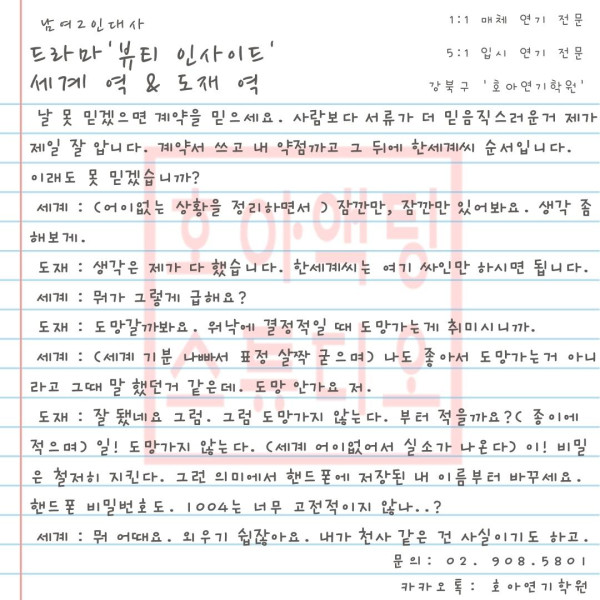 남여2인대사
1:1 매체 연기 전문
드라마'뷰티 인사이드'
5:1 입시 연기 전문
세계 역 & 도재 역
강북구 '호아연기학원'
날 못 믿겠으면 계약을 믿으세요. 사람보다 서류가 더 믿음직스러운거 제가
제일 잘 압니다. 계약서 쓰고 내 약점까고 그 뒤에 한세계씨 순서입니다.
이래도 못 믿겠습니까?
세계 : (어이없는 상황을 정리하면서 ) 잠깐만, 잠깐만 있어봐요. 생각 좀
해보게.
도재 : 생각은 제가 다 했습니다. 한세계씨는 여기 싸인만 하시면 됩니다.
세계 : 뭐가 그렇게 급해요?
도재 : 도망갈까봐요. 워낙에 결정적일 때 도망가는게 취미시니까.
세계 : (세계 기분 나빠서 표정 살짝 굳으며) 나도 좋아서 도망가는거 아니
라고 그때 말 했던거 같은데. 도망 안가요 저.
도재 : 잘 됐네요 그럼. 그럼 도망가지 않는다. 부터 적을까요?( 종이에
적으며) 일! 도망가지 않는다. (세계 어이없어서 실소가 나온다) 이! 비밀
은 철저히 지킨다. 그런 의미에서 핸드폰에 저장된 내 이름부터 바꾸세요.
핸드폰 비밀번호도. 1004는 너무 고전적이지 않나..?
세계 : 뭐 어때요. 외우기 쉽잖아요. 내가 천사 같은 건 사실이기도 하고.
문의: 02. 908.5801
카카오톡: 호아연기학원
호아액팅
스튜디오